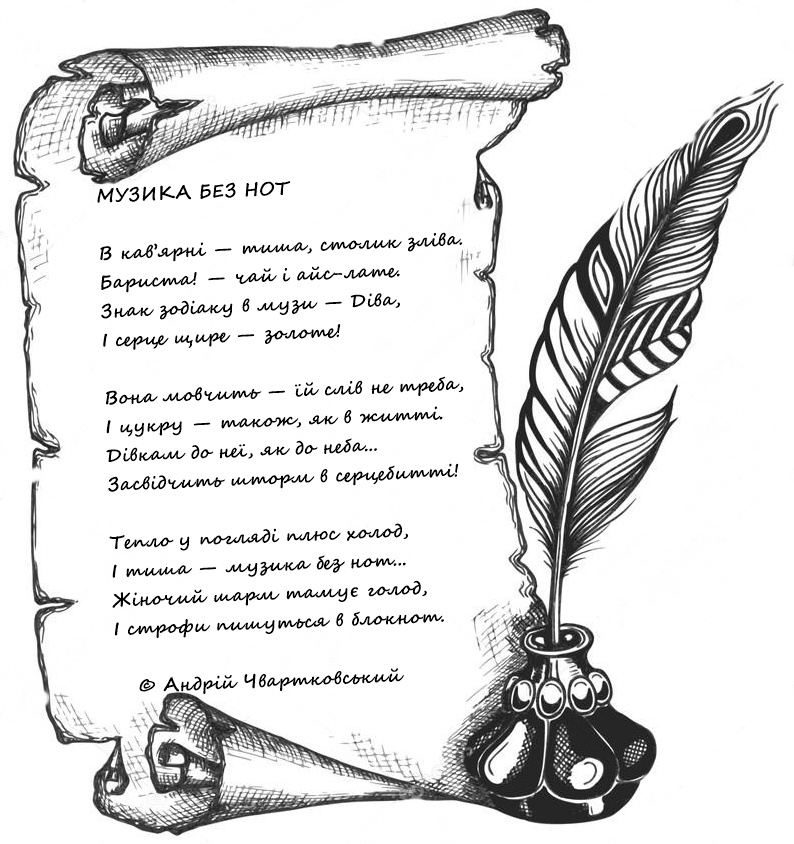 МУЗИКА БЕЗ НОТ
В кав'ярні — тиша, столик зліва.
Бариста! — чай і айс-лате.
Знак зодіаку в музи — Діва,
І серце щире — золоте!
Вона мовчить — їй слів не треба,
І цукру — також, як в житті.
Дівкам до неї, як до неба...
Засвідчить шторм в серцебитті!
Тепло у погляді плюс холод,
І тиша — музика без нот...
Жіночий шарм тамує голод,
І строфи пишуться в блокнот.
© Андрій Чвартковський